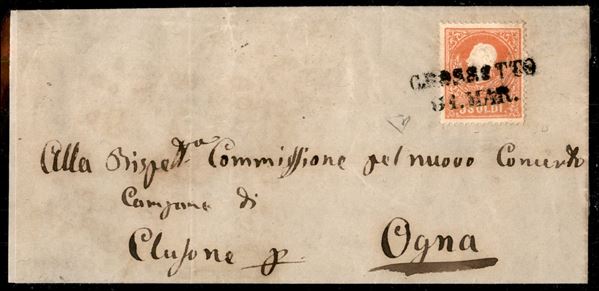 GROSSOTTO
31. MAR.
5 SOLDI
Alla Rispetta Commissione pel nuovo Concerto
Campane di
Clusone p Ogna